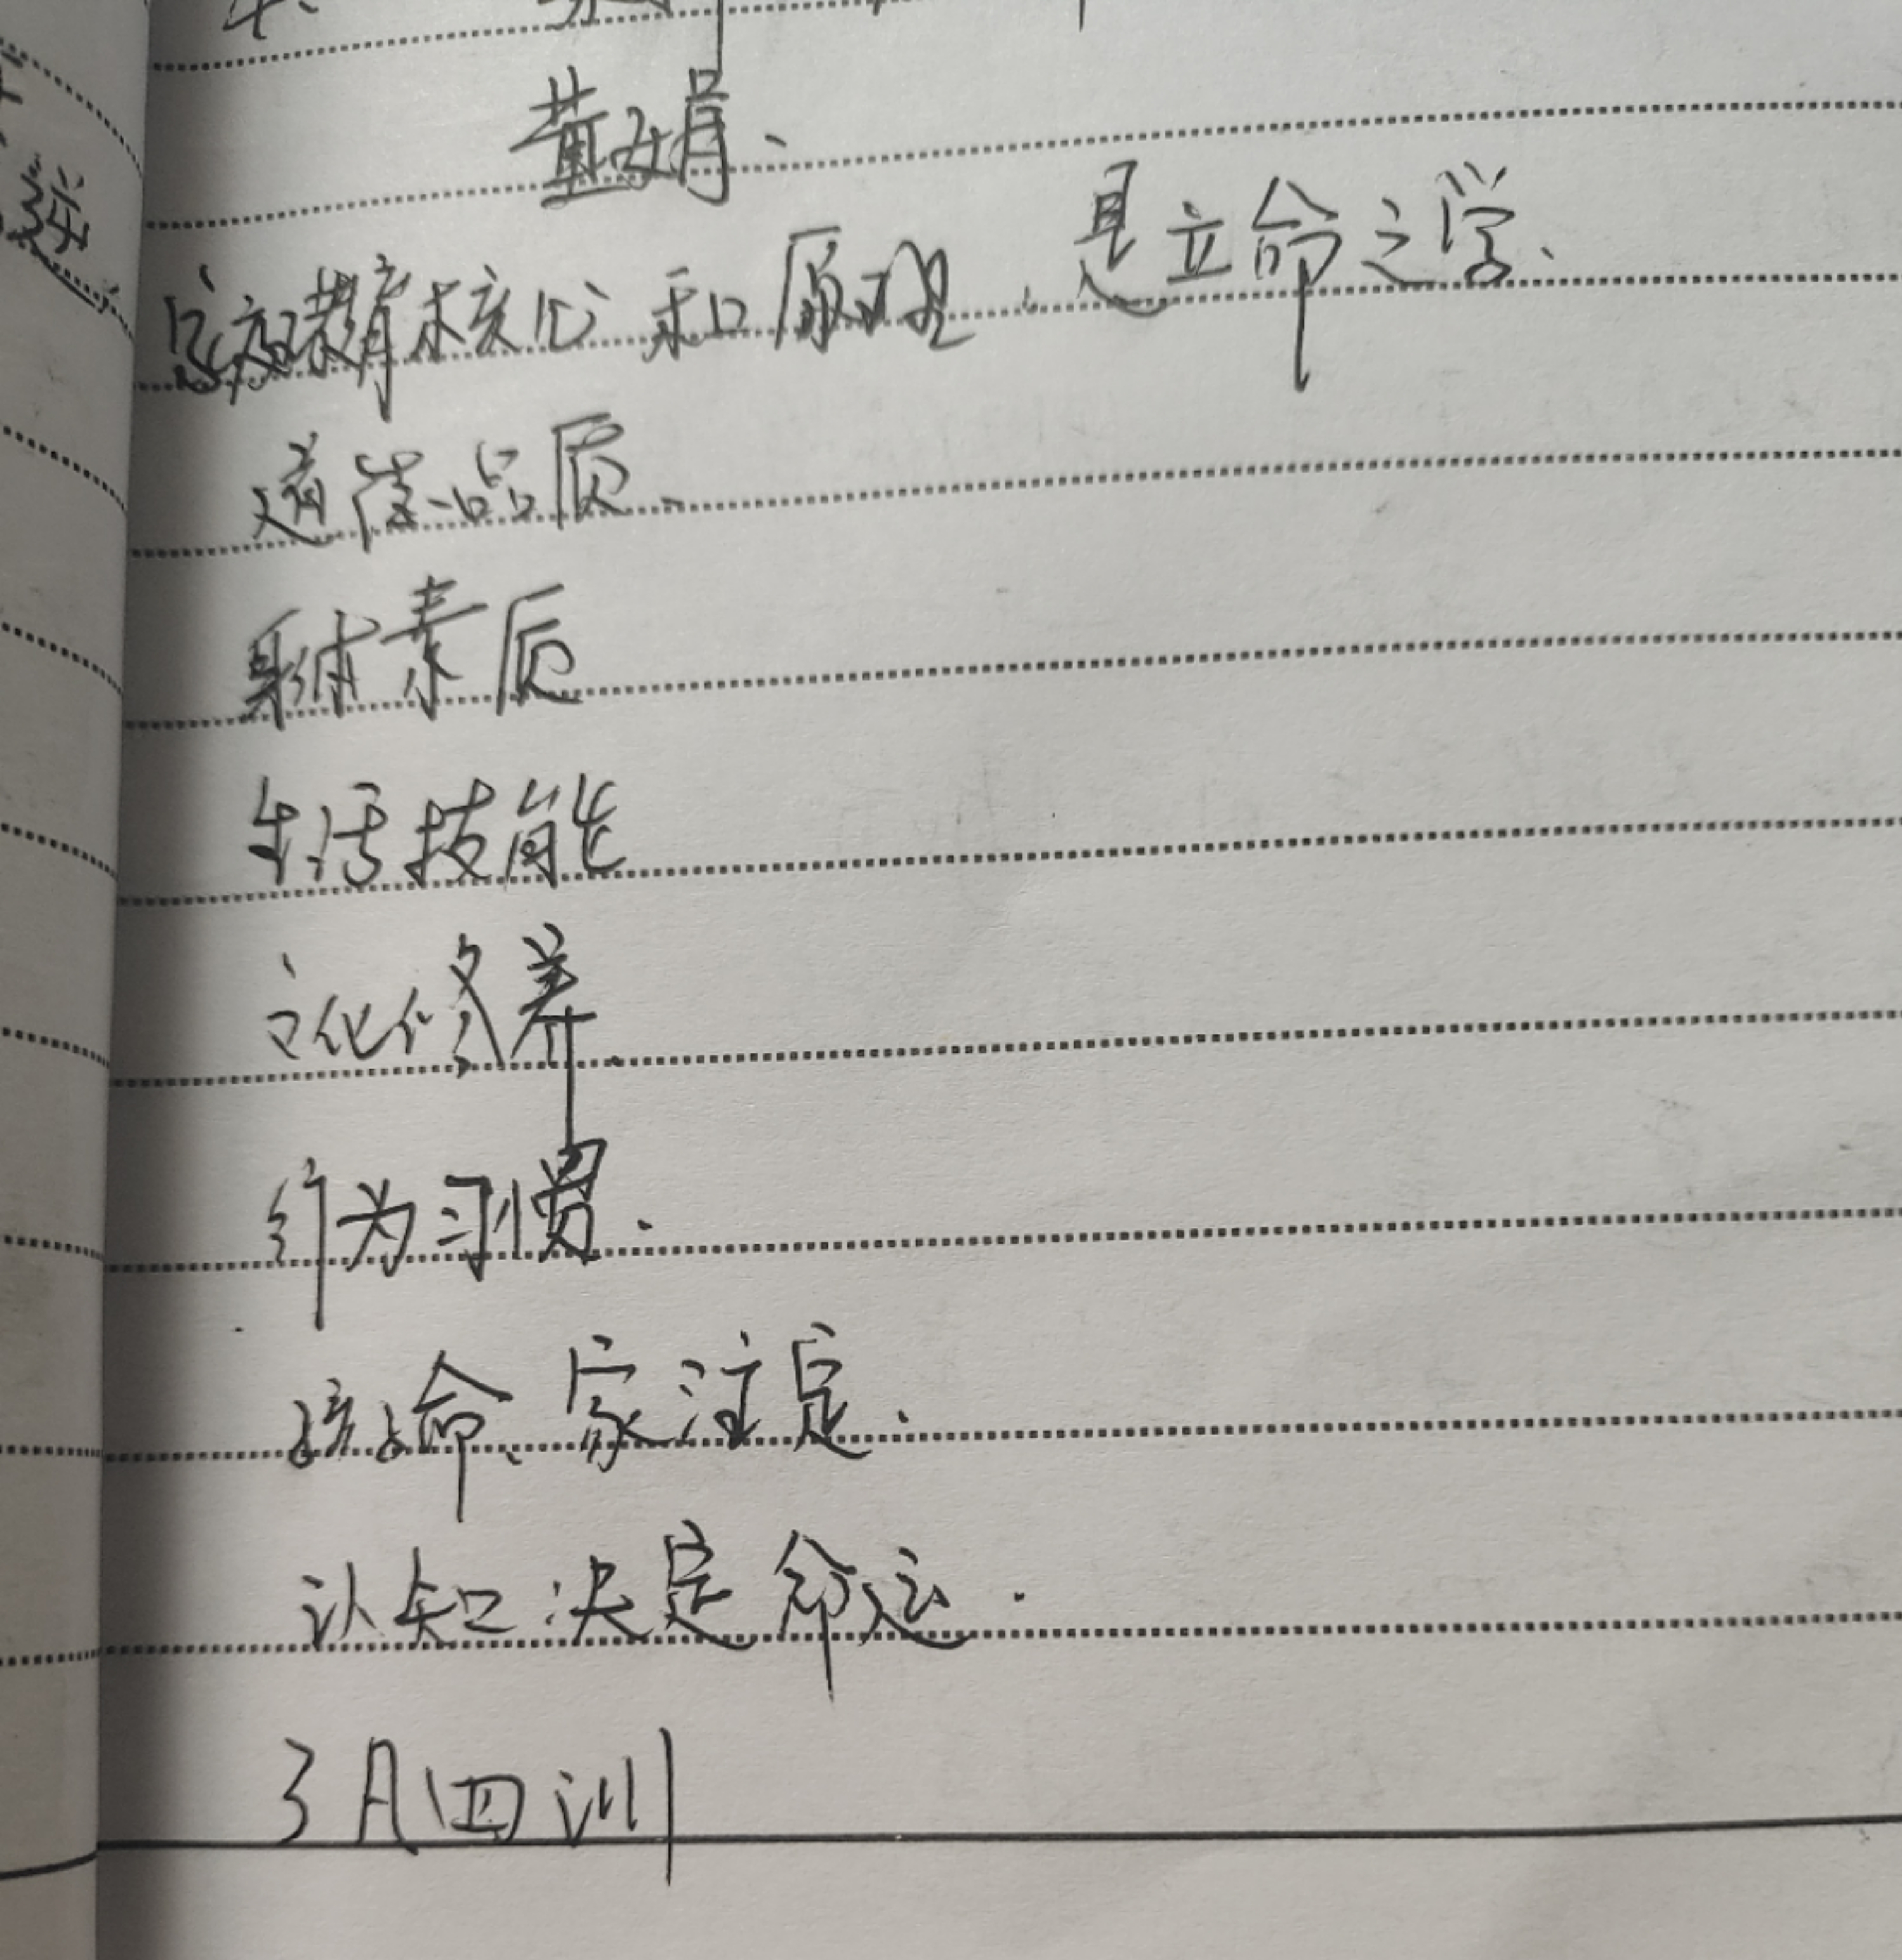 董娟、
家庭教育核心和原理、是立命之学、
道德品质、
身体素质
生活技能
文化修养、
行为习惯.
孩命、家注定.
认知决定命运.
了凡四训